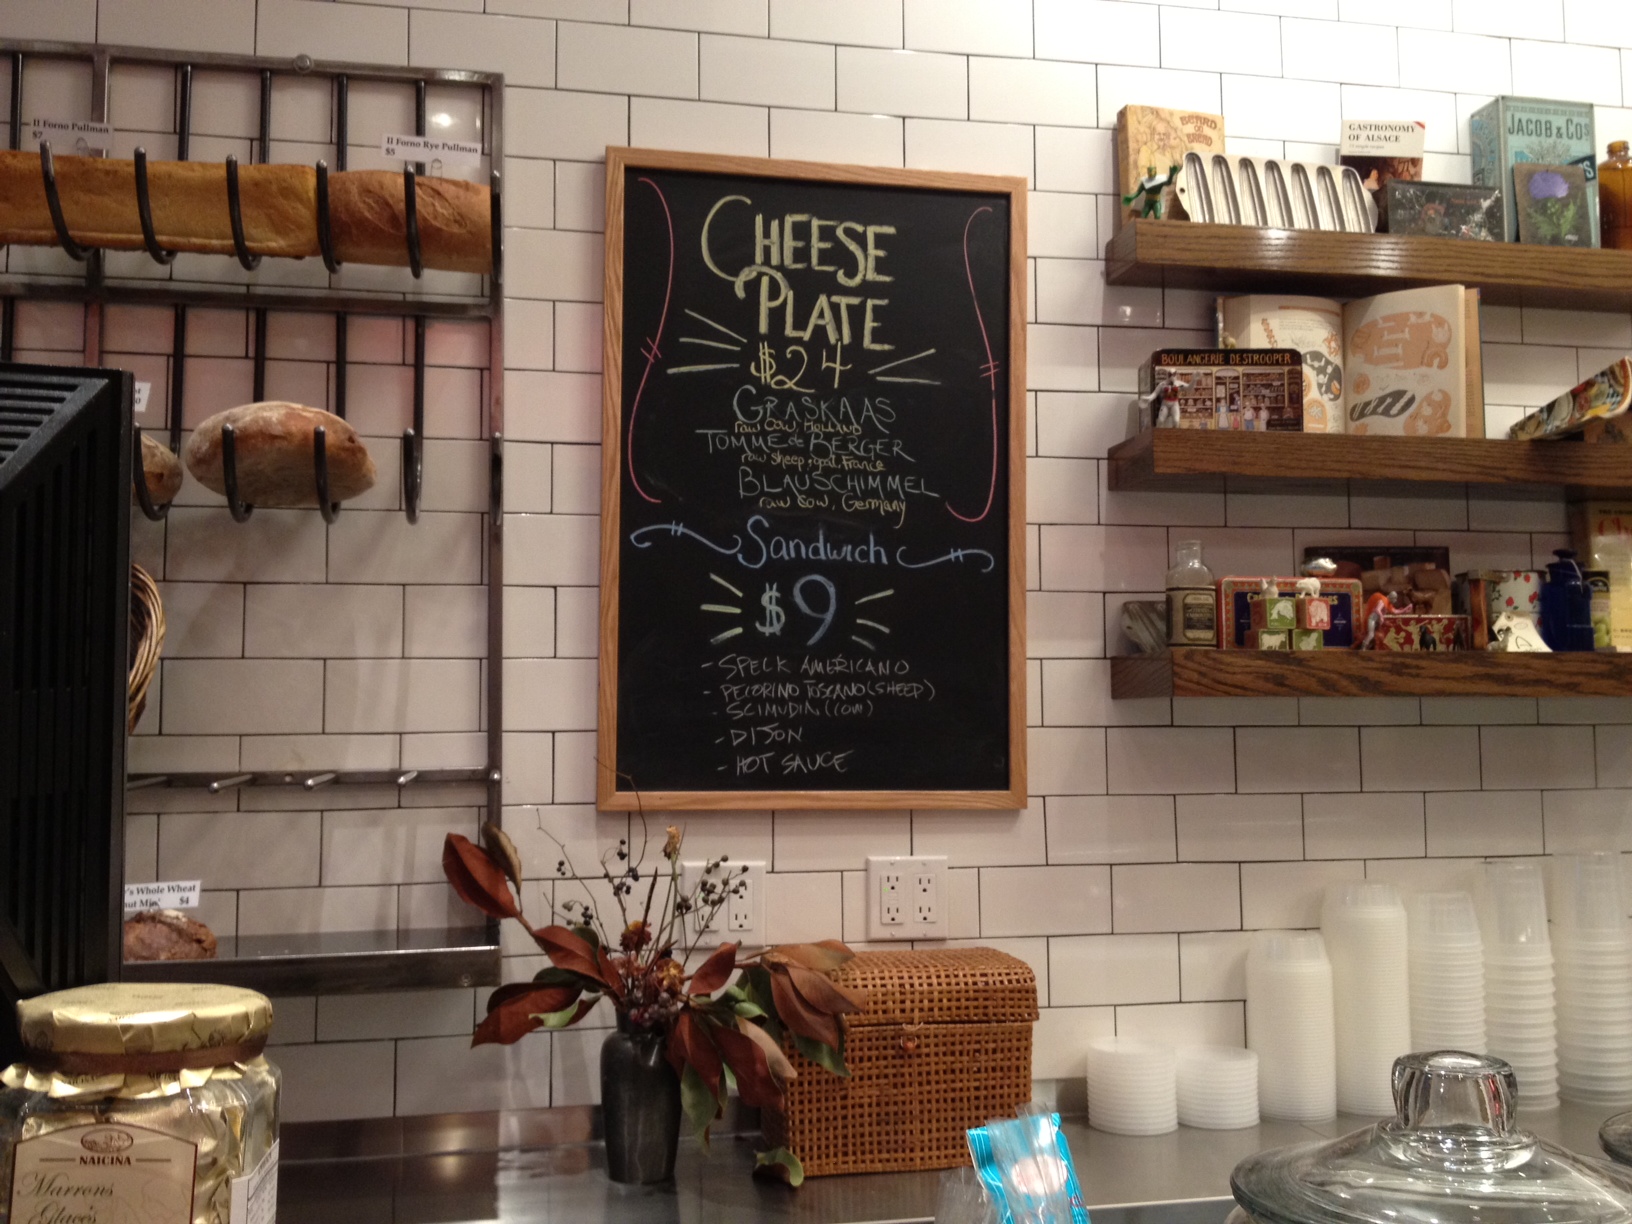 Il Forno Pullman
$7
Il Forno Rye Pullman
$5
CHEESE
PLATE
$24
GRASKAAS
raw cow, Holland
TOMME de BERGER
raw sheep, goat, France
BLAUSCHIMMEL
raw cow, Germany
Sandwich
$9
- SPECK AMERICANO
- PECORINO TOSCANO (SHEEP)
- SCIMUDIN (COW)
- DIJON
- HOT SAUCE
BEARD
ON
BREAD
GASTRONOMY
OF ALSACE
JACOB & CO'S
BOULANGERIE DESTROOPER
's Whole Wheat
$4
NAICINA
Marrons
Glacés